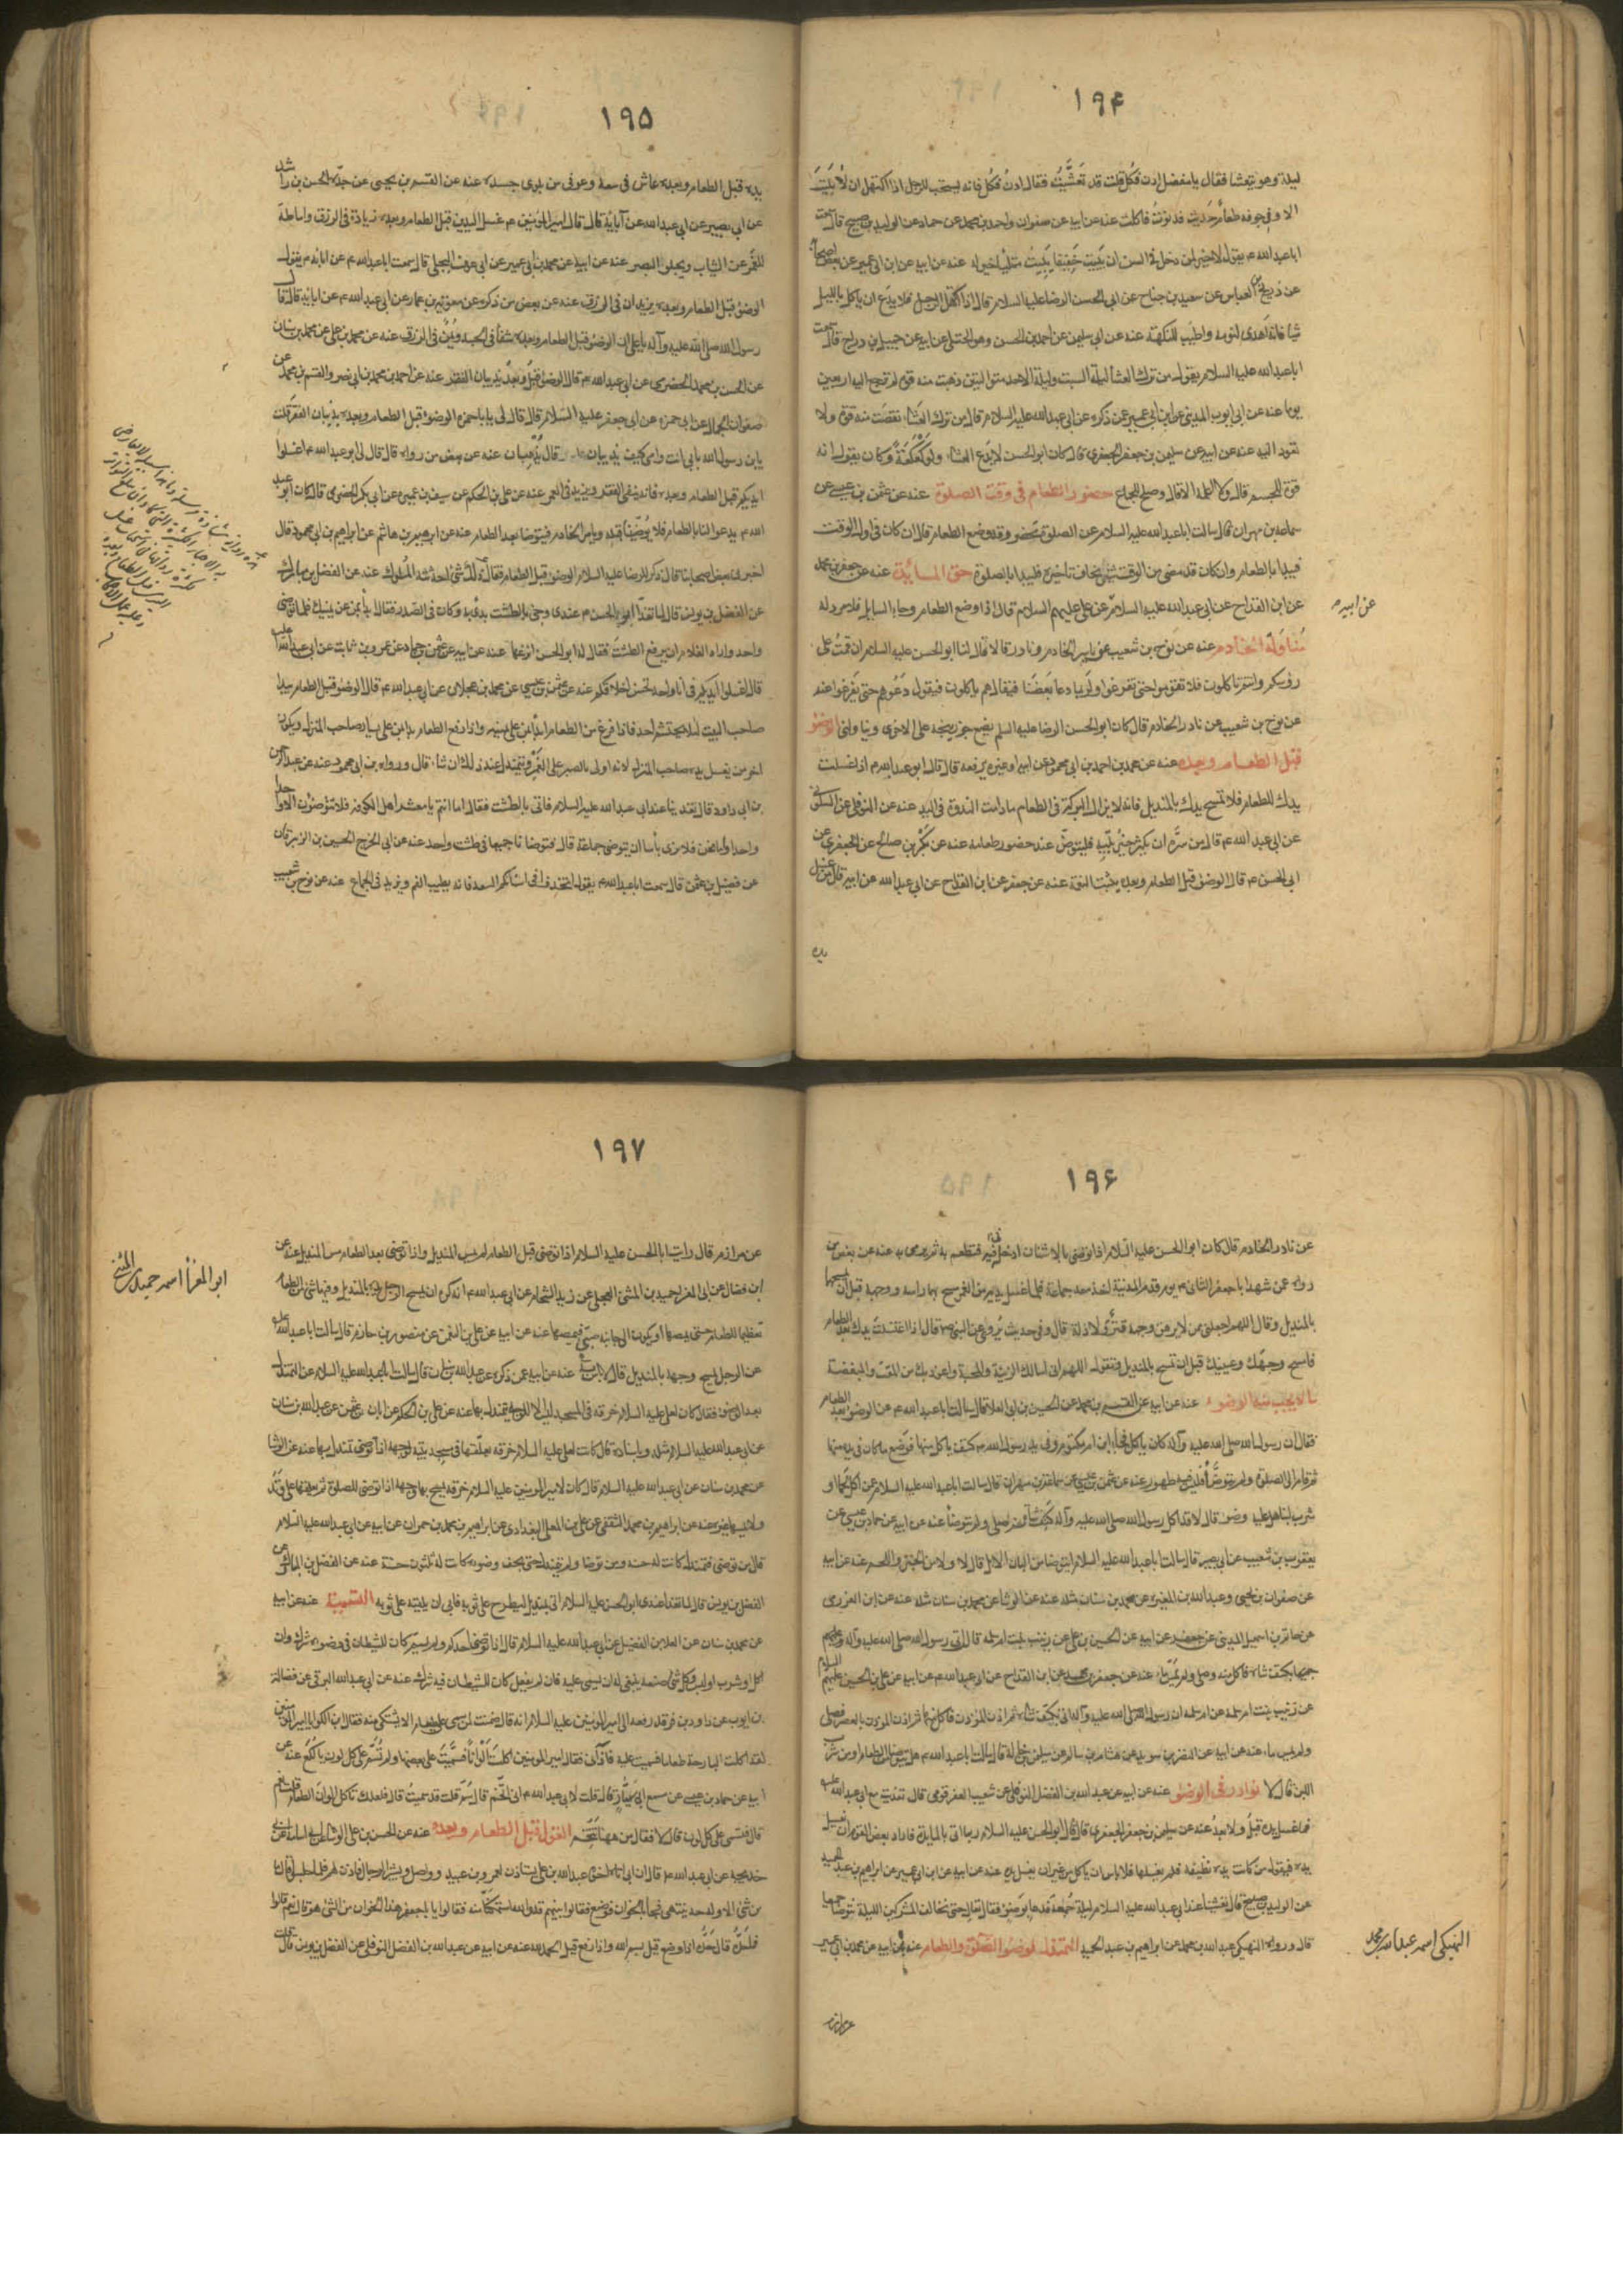 ١٩۴
ليلة وهو يتعشا فقال يا مفضل ادن فكل قلت قد تعشيت فقال ادن فكل فانه يستحب للرجل اذا اكتهل ان لا يبيت
الا وفى جوفه طعام حديث فدنوت فاكلت عنه عن ابيه عن صفوان واحمد بن محمد عن حماد عن الوليد بن صبيح قال سمعت
ابا عبد الله ع يقول لا خير لمن دخل فى السن ان يبيت خفيفا يبيت ممتليا خير له عنه عن ابيه عن ابن ابى عمير عن بعض اصحابه
عن ذريح عن العباس عن سعيد بن جناح عن ابى الحسن الرضا عليه السلام قال اذا اكتهل الرجل فلا يدع ان ياكل بالليل
شيا فانه اهدى لنومه واطيب للنكهة عنه عن ابى سليمن عن احمد بن الحسن وهو الختلى عن ابيه عن جميل بن دراج قال سمعت
ابا عبد الله عليه السلام يقول من ترك العشا ليلة السبت وليلة الاحد متواليتين ذهبت منه قوة لم ترجع اليه اربعين
يوما عنه عن ابى ايوب المدينى عن ابن ابى عمير عمن ذكره عن ابى عبد الله عليه السلام قال من ترك العشا نقصت منه قوة ولا
تعود اليه عنه عن ابيه عن سليمن بن جعفر الجعفرى قال كان ابو الحسن لا يدع العشا ولو كعكة وكان يقول انه
قوة للجسم قال ولا اعلمه الا قال وصلح للجماع حضور الطعام فى وقت الصلوة عنه عن عثمن بن عيسى عن
سماعة بن مهران قال سالت ابا عبد الله عليه السلام عن الصلوة تحضر وقد وضع الطعام قال ان كان فى اول الوقت
فيبدا بالطعام وان كان قد مضى من الوقت شئ يخاف تاخيره فليبدا بالصلوة حق المائدة عنه عن جعفر بن محمد
عن ابن القداح عن ابى عبد الله عليه السلام عن على عليهم السلام قال اذا وضع الطعام وجاء السايل فلا مرد له
عن ابيه ع
مناولة الخادم عنه عن نوح بن شعيب عن ياسر الخادم ونادر قالا قال لنا ابو الحسن عليه السلام ان قمت على
رؤسكم وانتم تاكلون فلا تقوموا حتى تفرغوا ولربما دعا بعضنا فيقال هم ياكلون فيقول دعوهم حتى يفرغوا عنه
عن نوح بن شعيب عن نادر الخادم قال كان ابو الحسن الرضا عليه السلم يضع جوزينجة على الاخرى ويناولنى الوضو
قبل الطعام وبعده عنه عن محمد بن احمد بن ابى محمود عن ابيه او غيره يرفعه قال قال ابو عبد الله ع اذا غسلت
يدك للطعام فلا تمسح يدك بالمنديل فانه لا يزال البركة فى الطعام ما دامت الندوة فى اليد عنه عن النوفلى عن السكونى
عن ابى عبد الله ع قال من سره ان يكثر خير بيته فليتوض عند حضور طعامه عنه عن بكر بن صالح عن الجعفرى عن
ابى الحسن ع قال الوضو قبل الطعام وبعده يثبت النعمة عنه عن جعفر عن ابن القداح عن ابى عبد الله عن ابيه قال من غسل
يده
١٩۵
يده قبل الطعام وبعده عاش فى سعة وعوفى من بلوى جسده عنه عن القسم بن يحيى عن جده الحسن بن راشد
عن ابى بصير عن ابى عبد الله عن آبائه قال قال امير المؤمنين ع غسل اليدين قبل الطعام وبعده زيادة فى الرزق واماطة
للغمر عن الثياب ويجلو البصر عنه عن ابيه عن محمد بن ابى عمير عن ابى عوف البجلى قال سمعت ابا عبد الله ع يقول
الوضو قبل الطعام وبعده يزيدان فى الرزق عنه عن بعض من ذكره عن معوية بن عمار عن ابى عبد الله ع عن ابائه قال قال
رسول الله صلى الله عليه وآله يا على ان الوضو قبل الطعام وبعده شفا فى الجسد ويمن فى الرزق عنه عن محمد بن على عن محمد بن سنان
عن الحسن بن محمد الحضرمى عن ابى عبد الله ع قال الوضو قبل وبعد يذيبان الفقر عنه عن احمد بن محمد بن ابى نصر والقسم بن محمد عن
صفوان الجمال عن ابى حمزة عن ابى جعفر عليه السلام قال قال لى يا با حمزة الوضوء قبل الطعام وبعده يذيبان الفقر قلت
يا بن رسول الله بابى انت وامى كيف يذيبان قال يذهبان عنه عن بعض من رواه قال قال لى ابو عبد الله ع اغسلوا
ايديكم قبل الطعام وبعده فانه ينفى الفقر ويزيد فى العمر عنه عن على بن الحكم عن سيف بن عميرة عن ابى بكر الحضرمى قال كان ابو عبد
الله ع يدعو لنا بالطعام فلا يوضينا قبله ويامر الخادم فيتوضا بعد الطعام عنه عن ابرهيم بن هاشم عن ابراهيم بن ابى محمود قال
اخبرنى بعض اصحابنا قال ذكر للرضا عليه السلام الوضو قبل الطعام فقال ذلك شئ احدثه الملوك عنه عن الفضل بن مبارك
عن الفضل بن يونس قال لما تغدا ابو الحسن ع عندى وجئ بالطشت بدئ به وكان فى الصدر فقال ابدا بمن عن يمينك فلما توضى
واحد واراد الغلام ان يرفع الطشت فقال له ابو الحسن انزعها عنه عن ابيه عن عثمن بن حماد عن عمرو بن ثابت عن ابى عبد الله عليه
قال اغسلوا ايديكم فى انا واحد تحسن اخلاقكم عنه عن عثمن بن عيسى عن محمد بن عجلان عن ابى عبد الله ع قال الوضو قبل الطعام يبدا
صاحب البيت لئلا يحتشم احد فاذا فرغ من الطعام ابتدا بمن على يمينه واذا رفع الطعام بدا بمن على يسار صاحب المنزل ويكون
اخر من يغسل يده صاحب المنزل لانه اولى بالصبر على الغمر ويتمندل عند ذلك ان شا قال ورواه بن ابى محمود عنه عن عبد الرحمن
بن ابى داود قال تغدينا عند ابى عبد الله عليه السلام فاتى بالطشت فقال اما انتم يا معشر اهل الكوفة فلا توضؤن الا واحدا
واحدا واما نحن فلا نرى بأسا ان يتوضى جماعة قال فتوضانا جميعا فى طشت واحد عنه عن ابى الخزرج الحسين بن الزبرقان
عن فضيل بن عثمن قال سمعت ابا عبد الله ع يقول اتخذوا فى اشنانكم السعد فانه يطيب الفم ويزيد فى الجماع عنه عن نوح بن شعيب
١٩۶
عن نادر الخادم قال كان ابو الحسن عليه السلام اذا توضى بالاشنان ادخله فى فيه فتطعم به ثم يرمى به عنه عن بعض من
رواه عمن شهد ابا جعفر الثانى ع يوم قدم المدينة تغدى معه جماعة فلما غسل يديه من الغمر مسح بهما راسه ووجهه قبل ان يمسحهما
بالمنديل وقال اللهم اجعلنى ممن لا يرهق وجهه قتر ولا ذلة قال وفى حديث يروى عن النبى ص قال اذا اغتسلت يدك بعد الطعام
فامسح وجهك وعينيك قبل ان تمسح بالمنديل وتقول اللهم انى اسالك الزينة والمحبة واعوذ بك من المقت والبغضة
ما لا يجب منه الوضوء عنه عن ابيه عن القسم بن محمد عن الحسين بن ابى العلا قال سالت ابا عبد الله ع عن الوضو بعد الطعام
فقال ان رسول الله صلى الله عليه وآله كان ياكل فجاء ابن ام مكتوم وفى يد رسول الله ص كتف ياكل منها فوضع ما كان فى يده منها
ثم قام الى الصلوة ولم يتوضأ فليس فيه طهور عنه عن عثمن بن عيسى عن سماعة بن مهران قال سالت ابا عبد الله عليه السلام عمن اكل لحما او
شرب لبنا هل عليه وضو قال لا قد اكل رسول الله صلى الله عليه وآله كتف شاة ثم صلى ولم يتوضأ عنه عن ابيه عن حماد بن عيسى عن
يعقوب بن شعيب عن ابى بصير قال سالت ابا عبد الله عليه السلام ايتوضا من البان الابل قال لا ولا من الخبز واللحم عنه عن ابيه
عن صفوان بن يحيى وعبد الله بن المغيرة عن محمد بن سنان مثله عنه عن الوشا عن محمد بن سنان مثله عنه عن ابن العزرمى
عن حاتم بن اسمعيل المدينى عن جعفر عن ابيه عن الحسين بن على عن زينب بنت ام سلمة قال اتى رسول الله صلى الله عليه وآله وعليهم
جميعا بكتف شاة فاكل منه وصلى ولم يمس ماء عنه عن جعفر بن محمد عن ابن القداح عن ابى عبد الله ع عن ابيه عن على بن الحسين عليهم السلام
عن زينب بنت ام سلمة عن ام سلمة ان رسول الله صلى الله عليه وآله اتى بكتف شاة ثم اذن المؤذن فاكل منها ثم اذن المؤذن بالعصر فصلى
ولم يمس ماء عنه عن ابيه عن النضر بن سويد عن هشام بن سالم عن سليمن بن خالد قال سالت ابا عبد الله ع هل يتوضا من الطعام او من شرب
اللبن قال لا نوادر فى الوضو عنه عن ابيه عن عبد الله بن الفضل النوفلى عن شعيب العقرقوفى قال تغديت مع ابى عبد الله عليه
فما غسل يده قبل ولا بعد عنه عن سليمن بن جعفر الجعفرى قال كان ابو الحسن عليه السلام ربما اتى بالمايدة فاراد بعض القوم ان يغسل
يده فيقول من كانت يده نظيفة فلم يغسلها فلا باس ان ياكل من غير ان يغسل يده عنه عن ابيه عن ابن ابى عمير عن ابراهيم بن عبد الحميد
عن الوليد بن صبيح قال تعشينا عند ابى عبد الله عليه السلام ليلة جماعة فدعا بوضو فقال تعال حتى نخالف المشركين الليلة نتوضا جميعا
قال ورواه النهيكى عبد الله بن محمد عن ابراهيم بن عبد الحميد التمندل لوضو الصلوة والطعام عنه عن ابيه عن محمد بن ابى عمير
النهيكى اسمه عبد الله بن محمد
عن مرازم
١٩٧
عن مرازم قال رايت ابا الحسن عليه السلام اذا توضى قبل الطعام لم يمس المنديل واذا توضى بعد الطعام مس المنديل عنه عن
ابن فضال عن ابى المغرا حميد بن المثنى العجلى عن زيد الشحام عن ابى عبد الله ع انه كره ان يمسح الرجل يده بالمنديل وفيها شئ من الطعام
ابو المغرا اسمه حميد بن المثنى
تعظيما للطعام حتى يمصها او يكون الى جانبه صبى فيمصها عنه عن ابيه عن على بن النعمن عن منصور بن حازم قال سالت ابا عبد الله عليه
عن الرجل يمسح وجهه بالمنديل قال لا باس به عنه عن ابيه عمن ذكره عن عبد الله بن سنان قال سالت ابا عبد الله عليه السلام عن التمندل
بعد الوضو فقال كان لعلى عليه السلام خرقة فى المسجد ليس الا للوجه يتمندل بها عنه عن على بن الحكم عن ابان بن عثمن عن عبد الله بن سنان
عن ابى عبد الله عليه السلام مثله وباسناده قال كانت لعلى عليه السلام خرقة يعلقها فى مسجد بيته لوجهه اذا توضى تمندل بها عنه عن الوشا
عن محمد بن سنان عن ابى عبد الله عليه السلام قال كان لامير المؤمنين عليه السلام خرقة يمسح بها وجهه اذا توضى للصلوة ثم يعلقها على وتد
ولا يمسها غيره عنه عن ابراهيم بن محمد الثقفى عن على بن المعلى البغدادى عن ابراهيم بن محمد بن حمران عن ابيه عن ابى عبد الله عليه السلام
قال من توضى فتمندل كانت له حسنة ومن توضا ولم يتمندل حتى يجف وضوءه كانت له ثلثون حسنة عنه عن الفضل بن المبارك عن
الفضل بن يونس قال لما تغدا عندى ابو الحسن عليه السلام اتى بمنديل ليطرح على ثوبه فابى ان يلقيه على ثوبه التسمية عنه عن ابيه
عن محمد بن سنان عن العلا بن الفضيل عن ابى عبد الله عليه السلام قال اذا توضى احدكم ولم يسم كان للشيطان فى وضوءه شرك وان
اكل او شرب او لبس وكل شئ صنعه ينبغى له ان يسمى عليه فان لم يفعل كان للشيطان فيه شرك عنه عن ابى عبد الله البرقى عن فضالة
بن ايوب عن داود بن فرقد رفعه الى امير المؤمنين عليه السلام انه قال ضمنت لمن سمى على طعام الا يشتكى منه فقال ابن الكوا يا امير المؤمنين
لقد اكلت البارحة طعاما فسميت عليه فآذانى فقال امير المؤمنين اكلت الوانا فسميت على بعضها ولم تسم على كل لون يا لكع عنه عن
ابيه عن حماد بن عيسى عن مسمع ابى سيار قال قلت لابى عبد الله ع انى اتخم قال سم قلت قد سميت قال فلعلك تاكل الوان الطعام قلت نعم
قال فتسمى على كل لون قال لا فقال من ههنا تتخم القول قبل الطعام وبعده عنه عن الحسن بن على الوشا عن ابى اسامة عن ابى
خديجة عن ابى عبد الله ع قال ان ابى اتاه اخوه عبد الله بن على يستاذن لعمرو بن عبيد وواصل وبشير الرحال فاذن لهم فلما جلسوا قال ما
من شئ الا وله حد ينتهى اليه فجئ بالخوان فوضع فقالوا بينهم قد والله استمكنا منه فقالوا يا با جعفر هذا الخوان من الشئ هو قال نعم قالوا
فما حده قال حده اذا وضع قيل بسم الله واذا رفع قيل الحمد لله عنه عن ابيه عن عبد الله بن الفضل النوفلى عن الفضل بن يونس قال